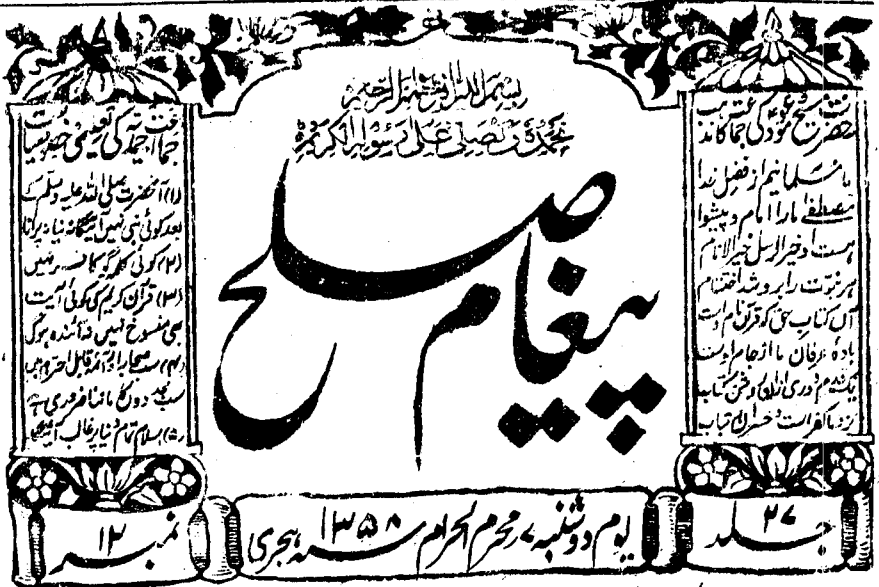 بسم اللہ الرحمٰن الرحیم
نحمدہ و نصلی علیٰ رسولہ الکریم
پیغام صلح
حضرت مسیح موعودؑ کی جماعت کا مذہب
ما مسلمانیم از فضل خدا
مصطفیٰ ما را امام و پیشوا
ہست او خیر الرسل خیر الانام
ہر نبوت را برو شد اختتام
آں کتاب حق کہ قرآں نام اوست
بادۂ عرفان ما از جام اوست
یک قدم دوری ازاں روشن کتاب
نزد ما کفر است و خسران و تباب
جماعت احمدیہ کی تعلیمی خصوصیات
(۱) آنحضرت صلی اللہ علیہ وسلم کے
بعد کوئی نبی نہیں آئیگا نہ نیا نہ پرانا
(۲) کوئی کلمہ گو کافر نہیں
(۳) قرآن کریم کی کوئی آیت
بھی منسوخ نہیں نہ آئندہ ہوگی
(۴) سب صحابہ اور آئمہ قابل احترام ہیں
سب مجددوں کا ماننا ضروری ہے
(۵) اسلام تمام دنیا پر غالب آئیگا
جلد ۲۷
یوم دوشنبہ ۷ محرم الحرام سنہ ۱۳۵۸ ہجری
نمبر ۱۲